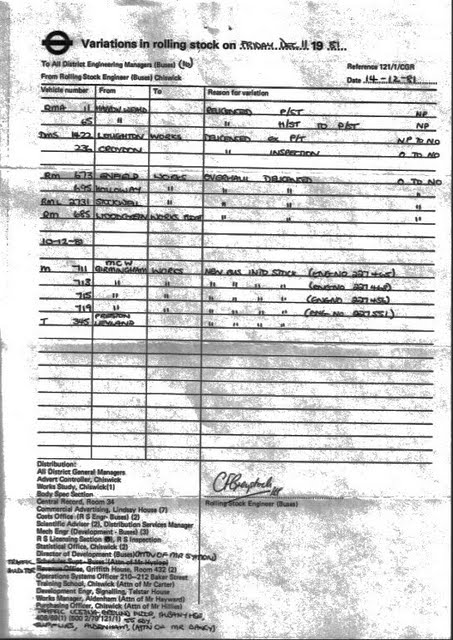 Variations in rolling stock on FRIDAY DEC. 11 19 81..
To All District Engineering Managers (Buses)
From Rolling Stock Engineer (Buses) Chiswick
Reference 121/1/CGR
Date 14-12-81
Vehicle number From To Reason for variation
RMA 11 DELICENCED P/ST NP
65 " " H/ST TO P/ST NP
DMS 1422 LOUGHTON WORKS DELICENCED ex P/T NP TO NO
236 CROYDON " INSPECTION O TO NO
RM 673 ENFIELD WORKS OVERHAUL DELICENCED O TO NO
695 HOLLOWAY " " " "
RML 2731 STOCKWELL " " " "
RM 685 WORKS " " "
10-12-81
M 711 MCW BIRMINGHAM WORKS NEW BUS INTO STOCK (ENG NO 227465)
718 " " " " " " (ENG NO 227468)
715 " " " " " " (ENG NO 227454)
719 " " " " " " (ENG NO 227551)
T 345 PRESTON LEYLAND " " " " "
Distribution:
All District General Managers
Advert Controller, Chiswick
Works Study, Chiswick (1)
Body Spec Section
Central Record, Room 34
Commercial Advertising, Lindsay House (7)
Costs Office (R S Engr- Buses) (2)
Scientific Adviser (2), Distribution Services Manager
Mech Engr (Development - Buses) (3)
R S Licensing Section, R S Inspection
Statistical Office, Chiswick (2)
Director of Development (Buses) (ATTN OF MR
Schedules Supt - Buses (Attn of Mr
Office, Griffith House, Room 432 (2)
Operations Systems Officer 210-212 Baker Street
Training School, Chiswick (Attn of Mr Carter)
Development Engr, Signalling, Telstar House
Works Manager, Aldenham (Attn of Mr Hayward)
Purchasing Officer, Chiswick (Attn of Mr Hillies)
TRAFFIC
408/69(1) (500 2/79 121/1) 55 BDY.
SUPPLIES, ALDENHAM, (ATTN OF MR
Rolling Stock Engineer (Buses)